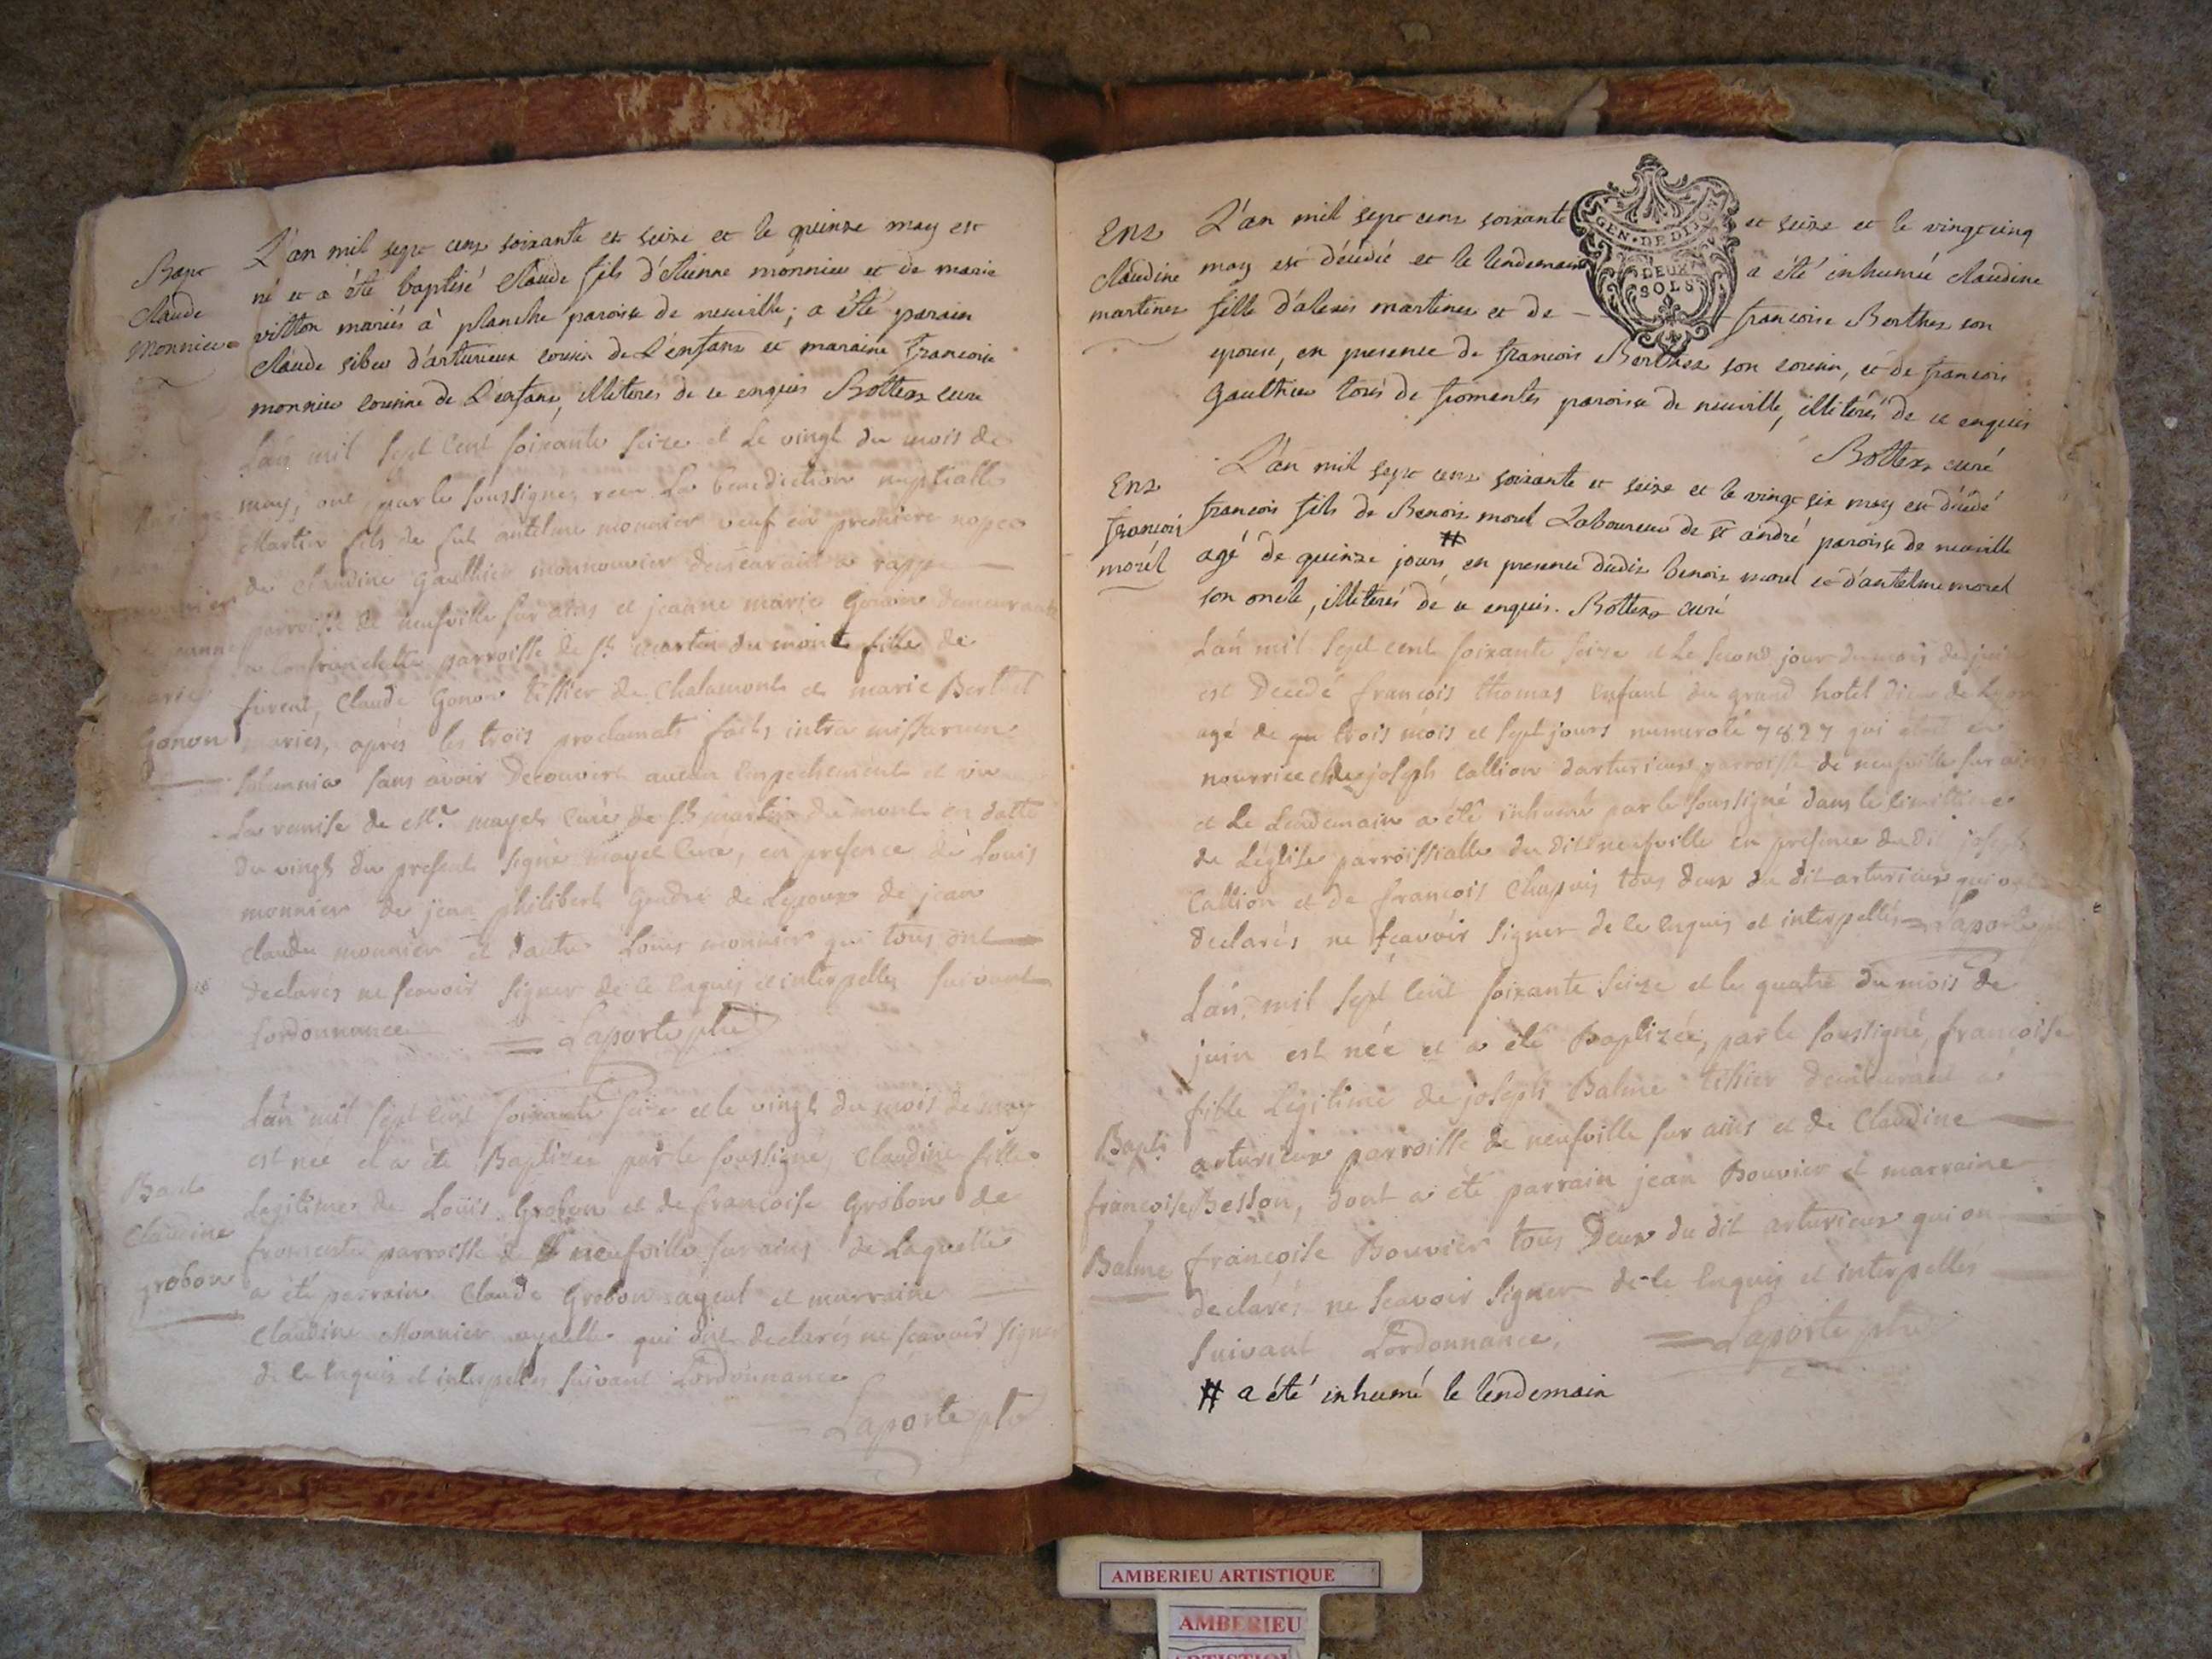 Bapt
Claude
Monnier
L'an mil sept cens soixante et seize et le quinze may est
né et a été baptisé Claude fils d'étienne monnier et de marie
vitton mariés à planche paroise de neuville; a été parain
Claude sibu d'arturieux cousin de L'enfant et maraine francoise
monnier cousine de L'enfant, illiterés de ce enquis Bottex curé
Lan mil sept cent soixante seize et Le vingt du mois de
may, ont par le soussigné recu La benediction nuptialle
Martin fils de feu antelme monnier veuf en premiere nopces
de Claudine gaulthier demeurant a
parroisse de neufville sur ains et jeanne marie Gonon demeurante
a Confranchette parroisse de St martin du mont fille de
Claude Gonon tissier de Chalamont et marie Berthet
mariés, aprés les trois proclamats faits intra missarum
solemnia sans avoir Decouvert aucun Empechement et vu
La remise de Mr. mayet Curé de St martin du mont en datte
du vingt du present signé mayet Curé, en presence de Louis
monnier de jean philibert de Lepoux de jean
claude monnier et dautre Louis monnier qui tous ont
declarés ne scavoir signer de ce Enquis et interpellés suivant
Lordonnance Laporte ptre
Gonon
Lan mil sept cent soixante seize et le vingt du mois de may
est née et a été Baptizée par le soussigné, Claudine fille
Legitime de Louis Grobon et de francoise Grobon de
fromente parroisse de neufville sur ains de Laquelle
a été parrain Claude Grobon ayeul et marraine
Claudine Monnier ayeulle qui ont declarés ne scavoir signer
de ce Enquis et interpellés suivant Lordonnance
Laporte ptre
Bapt
Claudine
grobon
Ent
Claudine
martinet
L'an mil sept cens soixante et seize et le vingt cinq
may est décédé et le lendemain a été inhumée claudine
fille d'alexis martinet et de - francoise Berthet son
epouse, en presence de francois Berthet son cousin, et de francois
Gaulthier tous de fromentes paroise de neuville, illiterés de ce enquis
Bottex curé
GEN · DE DIJON
DEUX
SOLS
Ent
francois
morel
L'an mil sept cens soixante et seize et le vingt six may est décédé
francois fils de Benoit morel Laboureur de St andré paroise de neuville
agé de quinze jours # en presence dudit benoit morel et d'antelme morel
son oncle, illiterés de ce enquis. Bottex curé
Lan mil sept cent soixante seize et Le second jour du mois de jui
est Decedé francois thomas Enfant du grand hotel dieu de Lyon
agé de trois mois et sept jours numeroté 7827 qui étoit en
nourrice chez joseph Callion darturieux parroisse de neufville sur ain
et Le Lendemain a été inhumé par le soussigné dans le cimittiere
de Léglise parroissialle du dit neufville en presence du dit joseph
Callion et de francois Chapuis tous deux du dit arturieux qui ont
declarés ne scavoir signer de ce Enquis et interpellés Laporte
Lan mil sept cent soixante seize et le quatre du mois de
juin est née et a été Baptizée, par le soussigné, francoise
fille Légitime de joseph Balme tissier demeurant a
arturieux parroisse de neufville sur ains et de Claudine
Besson, dont a été parrain jean Bouvier et marraine
francoise Bouvier tous Deux du dit arturieux qui on
declarés ne scavoir signer de ce Enquis et interpelles
suivant Lordonnance. Laporte ptre
Bapt
francoise
Balme
# a été inhumé le lendemain
AMBERIEU ARTISTIQUE
AMBERIEU
ARTISTIQUE